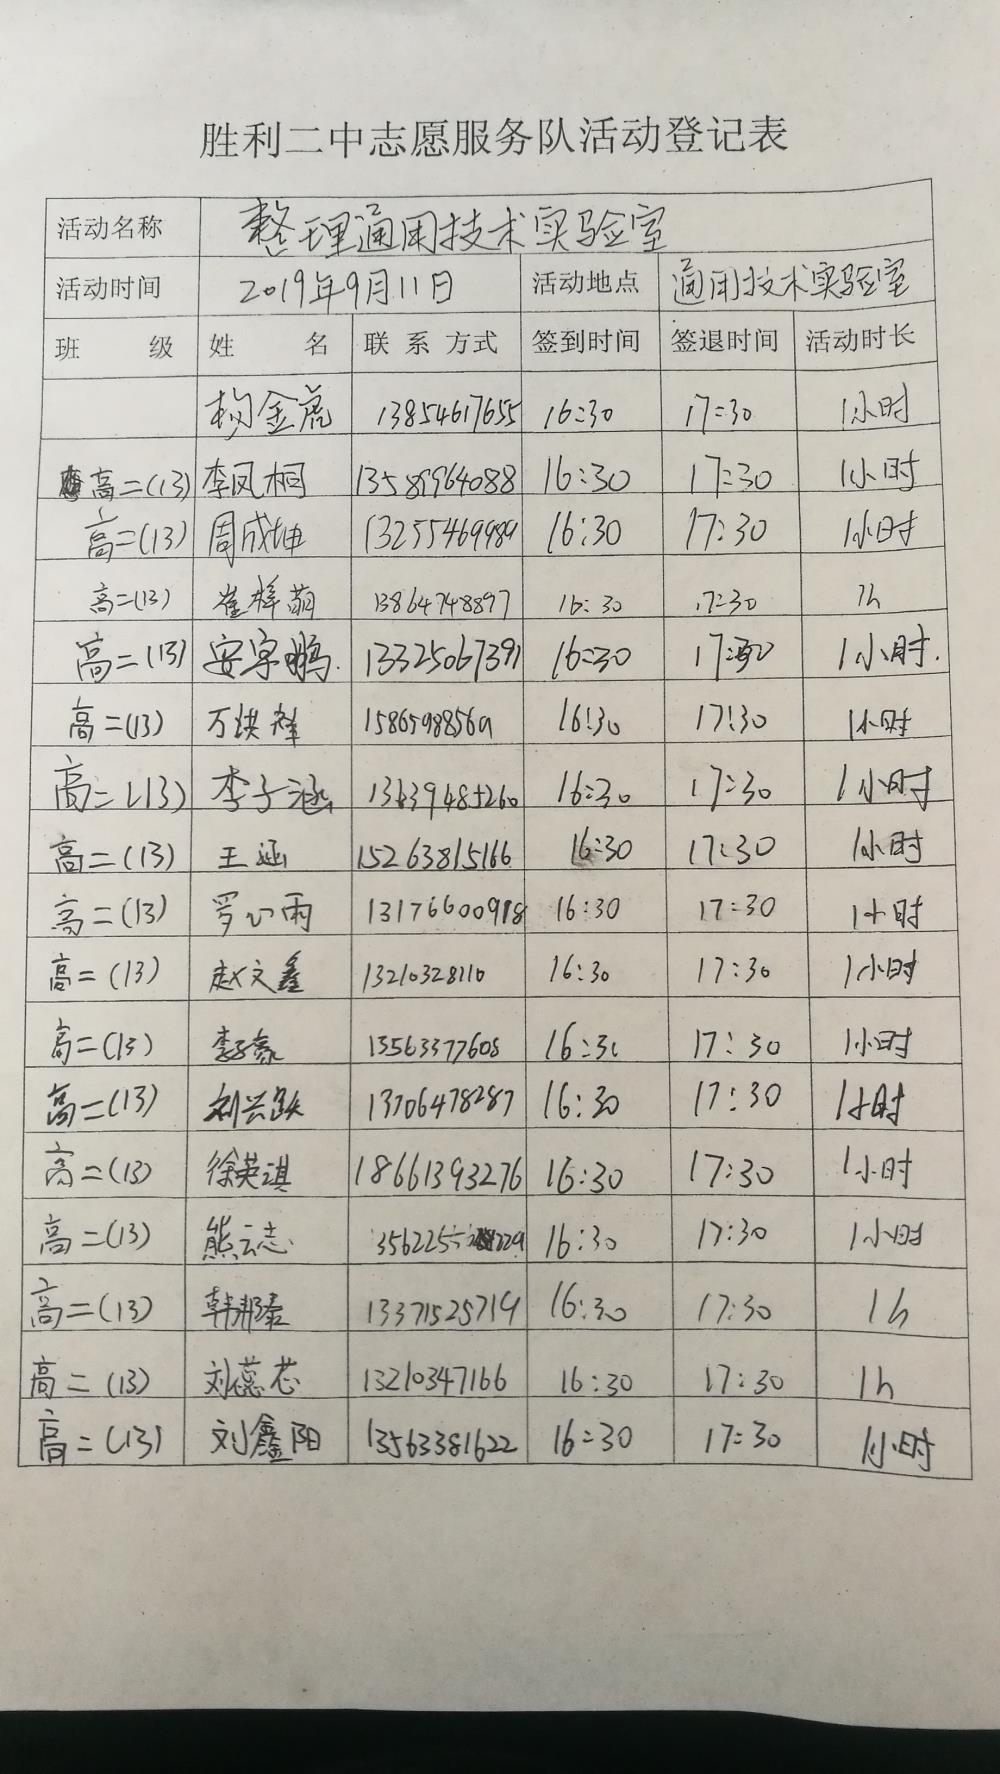 胜利二中志愿服务队活动登记表
活动名称 整理通用技术实验室
活动时间 2019年9月11日 活动地点 通用技术实验室
班 级 姓 名 联 系 方式 签到时间 签退时间 活动时长
杨金虎 13854617655 16:30 17:30 1小时
高二(13) 李凤桐 13589964088 16:30 17:30 1小时
高二(13) 周成坤 13255469989 16:30 17:30 1小时
高二(13) 崔梓萌 13864748897 16:30 17:30 1h
高二(13) 安宇鹏 13325067391 16:30 17:30 1小时
高二(13) 16:30 17:30 1小时
高二(13) 李子涵 16:30 17:30 1小时
高二(13) 王涵 15263815166 16:30 17:30 1小时
高二(13) 罗心雨 13176600918 16:30 17:30 1小时
高二(13) 赵文鑫 13210328110 16:30 17:30 1小时
高二(13) 13563377608 16:30 17:30 1小时
高二(13) 刘兴跃 13706478287 16:30 17:30 1小时
高二(13) 徐英淇 18661393276 16:30 17:30 1小时
高二(13) 熊云志 16:30 17:30 1小时
高二(13) 13371525719 16:30 17:30 1h
高二(13) 刘蕊芯 13210347166 16:30 17:30 1h
高二(13) 刘鑫阳 13563381622 16:30 17:30 1小时